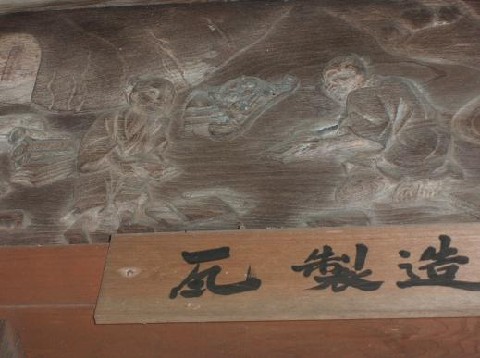 瓦製造